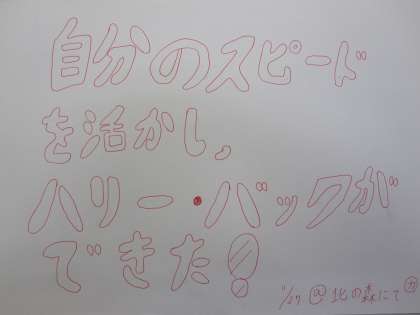 自分のスピード
を活かし,
ハリー・バックが
できた!
11/27 北の森にて